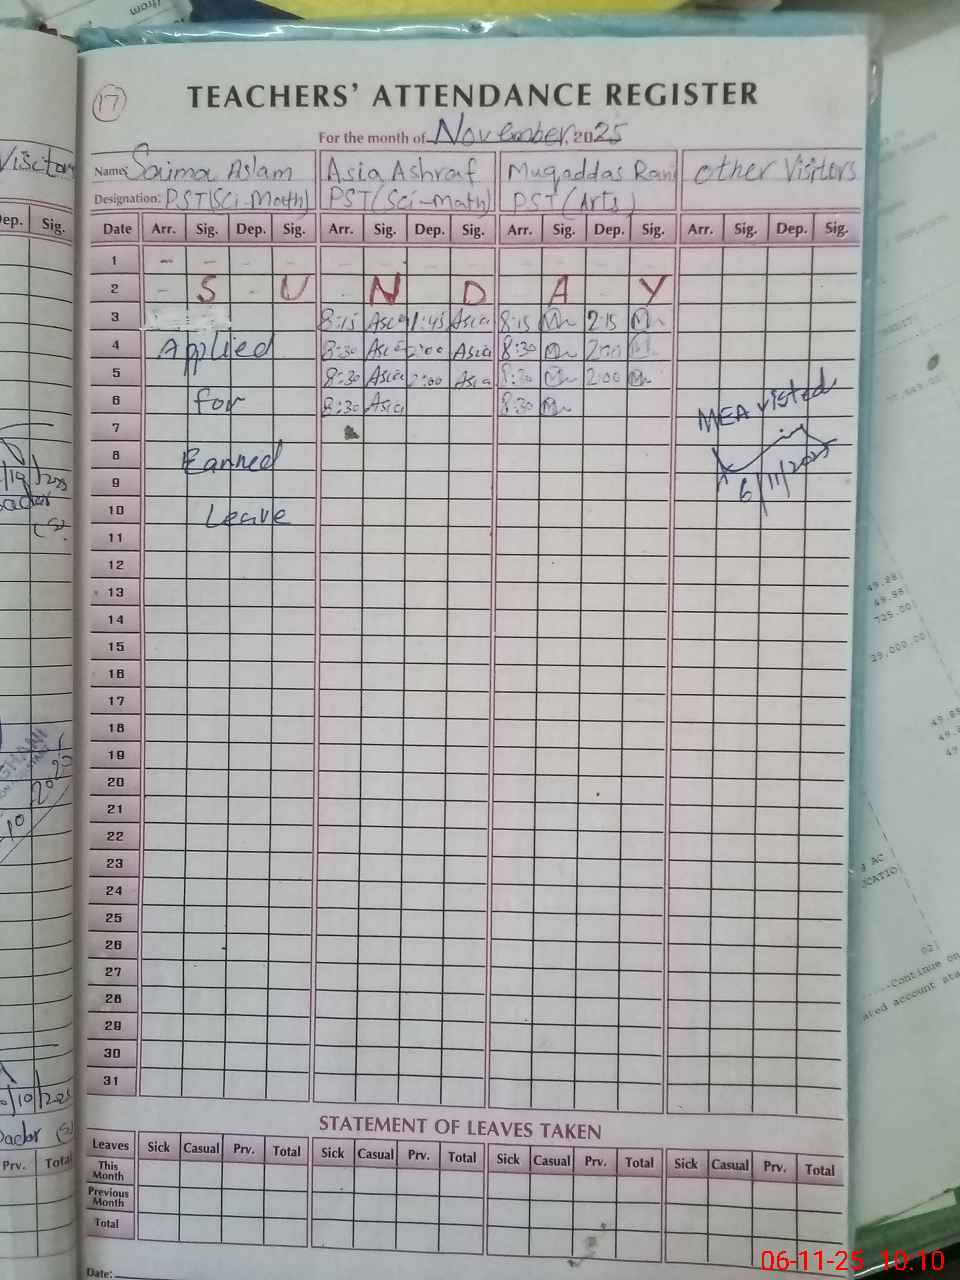 17
TEACHERS' ATTENDANCE REGISTER
For the month of November, 2025
Name: Saima Aslam Asia Ashraf Muqaddas Rani other Visitors
Designation: PST(Sci-Math) PST(Sci-Math) PST(Arts)
Date Arr. Sig. Dep. Sig. Arr. Sig. Dep. Sig. Arr. Sig. Dep. Sig. Arr. Sig. Dep. Sig.
1 - - - - - - - - - - - -
2 - S - U - N D A - Y
3 8:15 Asia 1:45 Asia 8:15 2:15
4 Applied 8:30 Asia 2:00 Asia 8:30 2:00
5 8:30 Asia 2:00 Asia 8:30 2:00
6 for 8:30 Asia 8:30 MEA visted
7
8 Earned
9 6/11/2025
10 Leave
11
12
13
14
15
16
17
18
19
20
21
22
23
24
25
26
27
28
29
30
31
STATEMENT OF LEAVES TAKEN
Leaves Sick Casual Prv. Total Sick Casual Prv. Total Sick Casual Prv. Total Sick Casual Prv. Total
This Month
Previous Month
Total
Date:
Visitors
Dep. Sig.
Prv. Total
49.95
725.00
29,000.00
-----Continue on
ated account
06-11-25 10:10